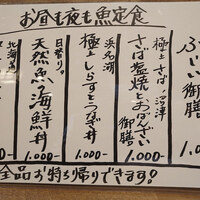 お昼も夜も魚定食
御膳
1.000-
極上さば・沼津
さば塩焼とおばんざい
御膳
1.000-
浜名湖
極上しらすとうなぎ丼
1.000-
日替り。
天然魚の海鮮丼
1.000-
北海
1.000-
全品お持ち帰りできます!